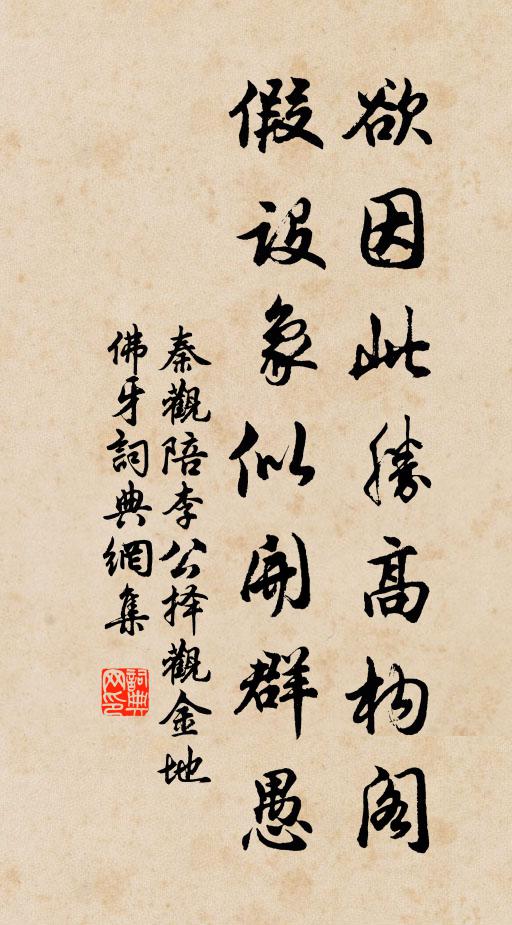 欲因此勝高构阁
假设象似開群愚
秦觀陪李公择觀金地
佛牙詞典網集
詞典网印